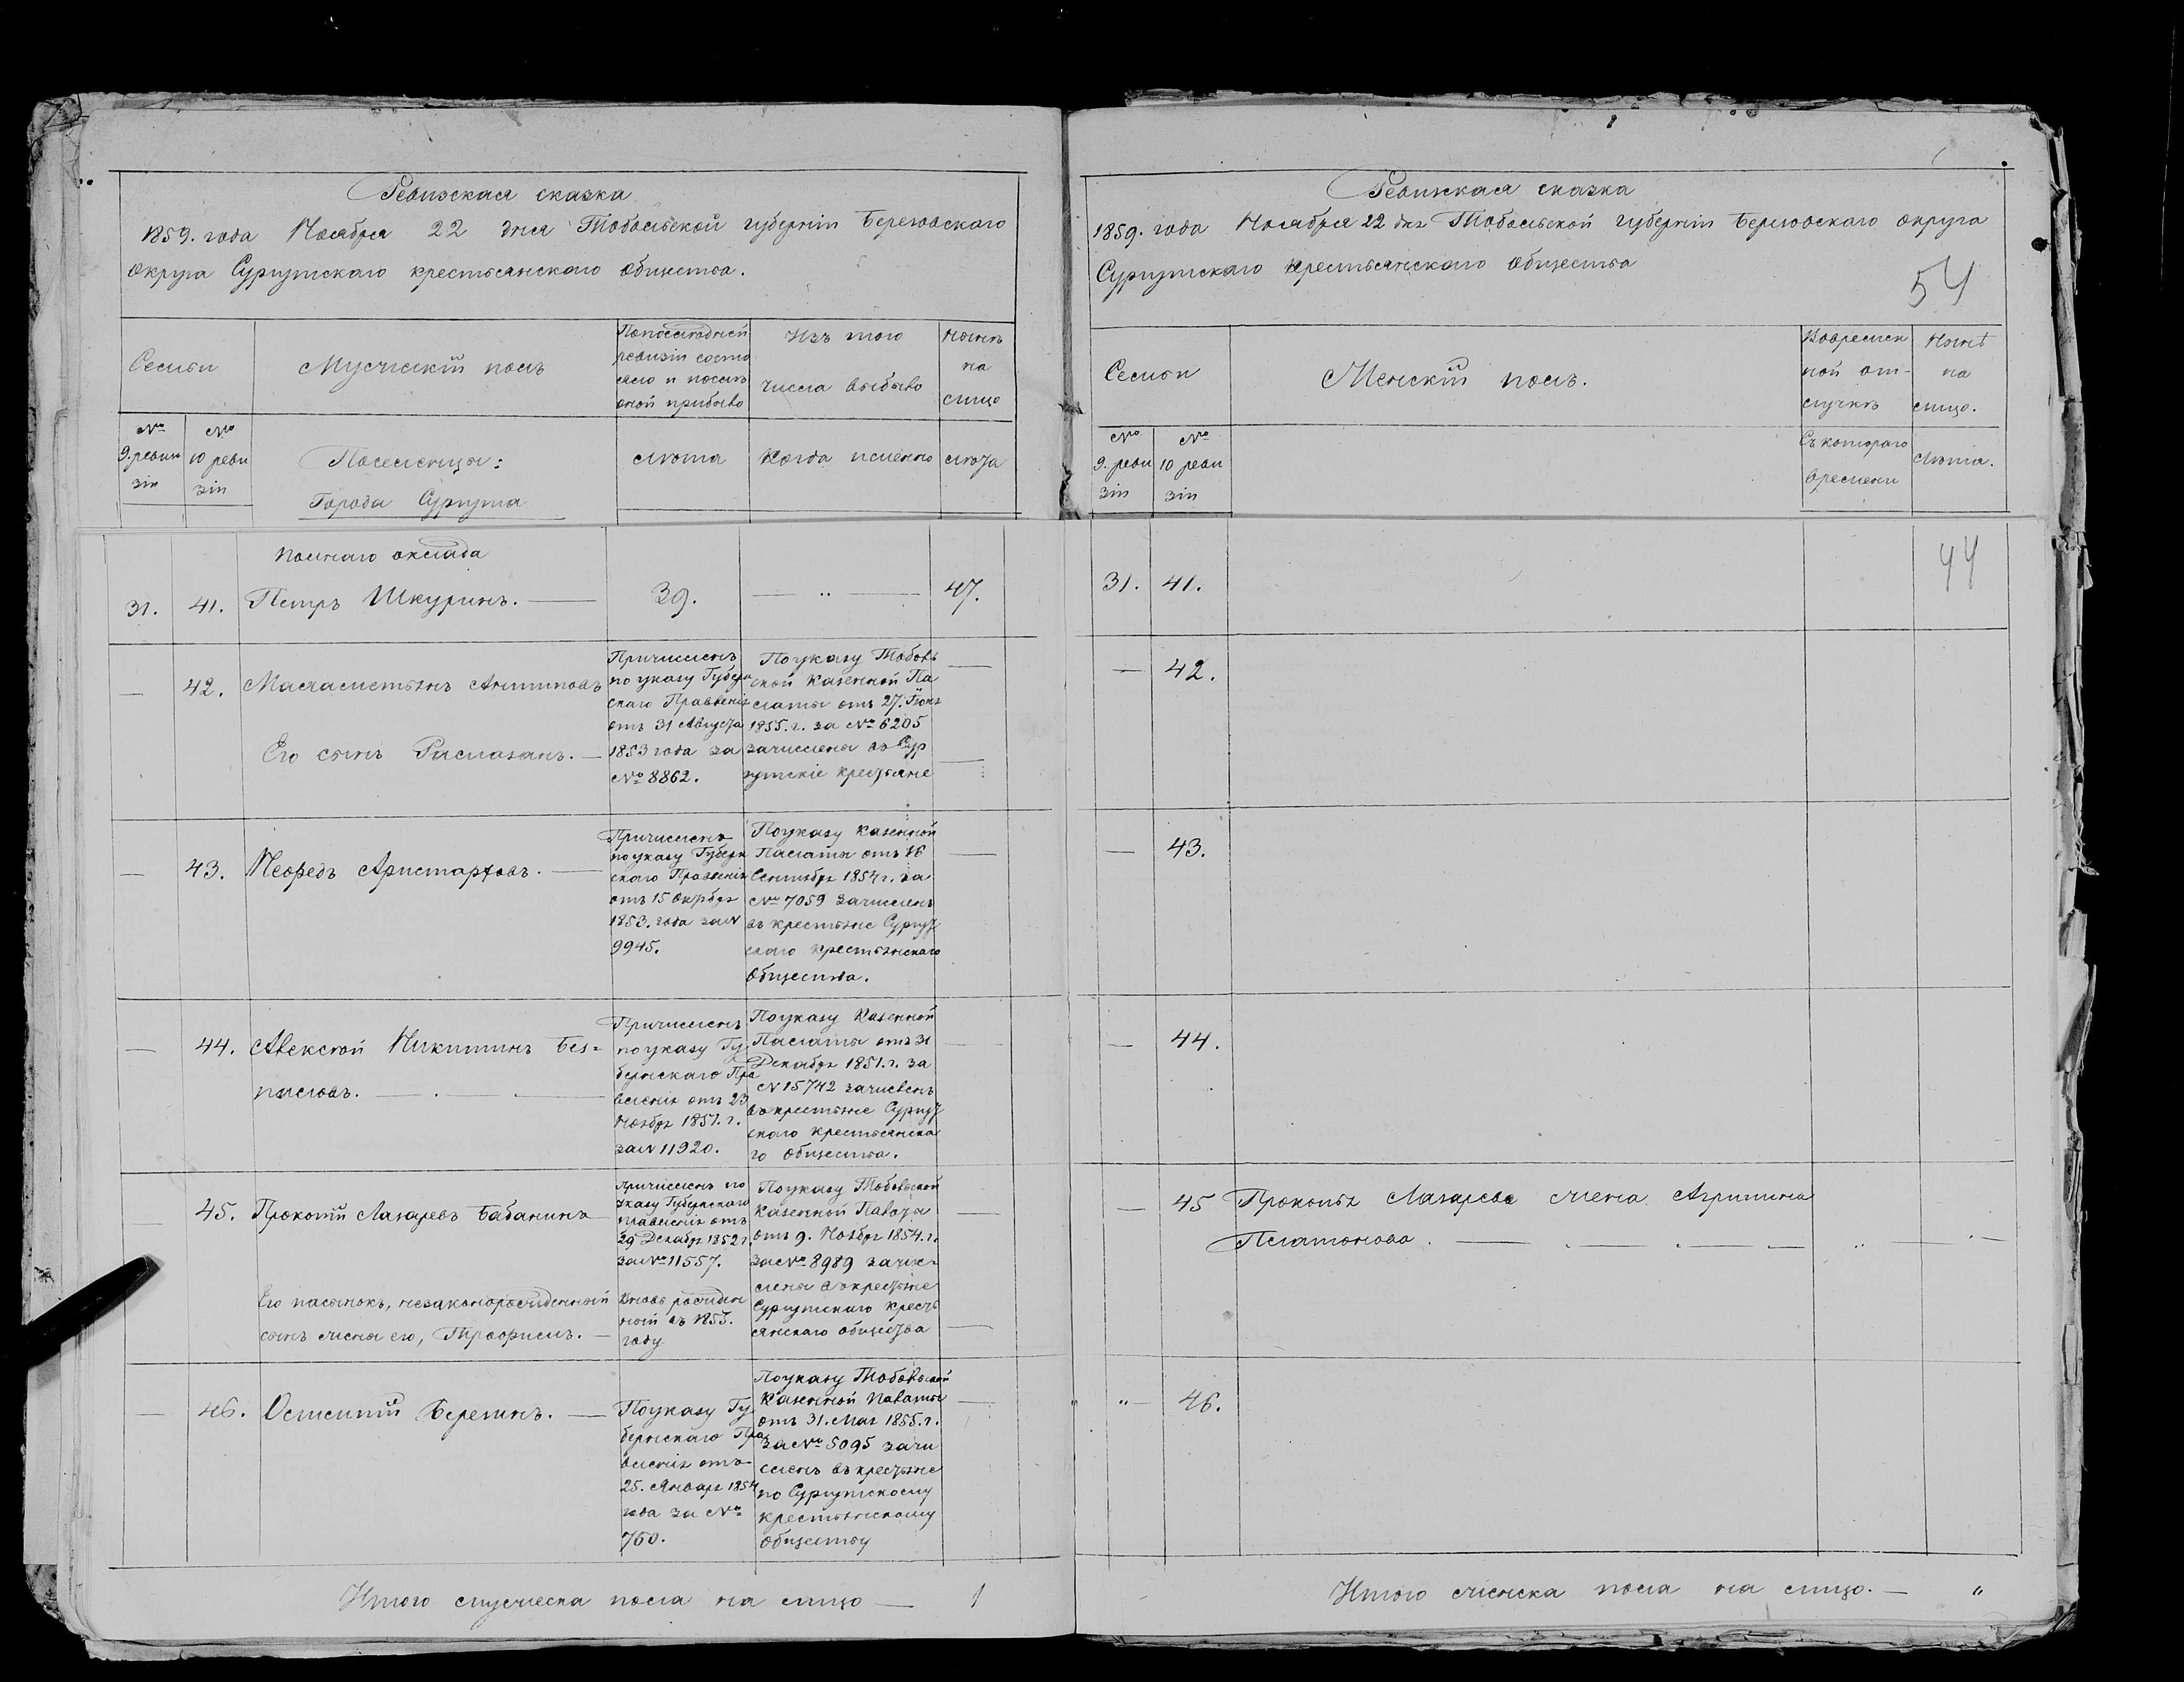 Ревизская сказка
1859. года Ноября 22 дня Тобольской губерніи Березовскаго
округа Сургутскаго крестьянскаго общества.
Семьи
Мужескій полъ
По последней
ревизіи состо
яло и после
оной прибыло
Изъ того
числа выбыло
Ныне
на
лицо
№
9. реви
зіи
№
10 реви
зіи
Поселенцы:
Города Сургута
лета
Когда именно
лета
полнаго оклада
31. 41. Петръ Шкуринъ. — 39. — „ — 47.
— 42.
Его сынъ Рамазанъ. —
Причисленъ
по указу Губерн
скаго Правленія
отъ 31 Августа
1853 года за
№ 8862.
По указу Тоболь
ской Казенной Па
латы отъ 27. Іюня
1855. г. за № 6205
зачислены въ Сур
гутскіе крестьяне
— 43. Аристарховъ. —
Причисленъ
по указу Губерн
скаго Правленія
отъ 15 Октября
1853. года за №
9945.
По указу Казенной
Палаты отъ 16
Сентября 1854 г. за
№ 7059 зачисленъ
въ крестьяне Сургут
скаго крестьянскаго
общества.
— 44. Алексей Никитинъ Без=
Причисленъ
по указу Гу
бернскаго Пра
вленія отъ 23
Ноября 1851. г.
за № 11920.
По указу Казенной
Палаты отъ 31
Декабря 1851. г. за
№ 15742 зачисленъ
въ крестьяне Сургут
скаго крестьянска
го общества.
— 45. Прокопій Лазаревъ Бабанинъ —
Причисленъ по
указу Губернскаго
правленія отъ
29 Декабря 1852 г.
за № 11557.
По указу Тобольской
Казенной Палаты
отъ 9. Ноября 1854. г.
за № 8989 зачис-
лены въ крестьяне
Сургутскаго кресть
янскаго общества
Его пасынокъ, незаконорожденный
сынъ жены его, Трофимъ. —
Вновь рожден
ный въ 1853.
году
— 46. Березинъ. —
По указу Гу
бернскаго Пра
вленія отъ
25. Января 1854
года за №
760.
По указу Тобольской
Казенной Палаты
отъ 31. Мая 1855. г.
за № 5095 зачи
сленъ въ крестьяне
по Сургутскому
крестьянскому
обществу
Итого мужеска пола на лицо — 1
Ревизская сказка
1859. года Ноября 22 дня Тобольской губерніи Березовскаго округа
Сургутскаго крестьянскаго общества
54
Семьи
Женскій полъ.
Во времен
ной от-
лучке
Ныне
на
лицо.
№
9. реви
зіи
№
10 реви
зіи
Съ котораго
времени
лета.
44
31. 41.
— 42.
— 43.
— 44.
— 45 Прокопья Лазарева жена Агрипина
Платонова. —
„ — 46.
Итого женска пола на лицо. — „